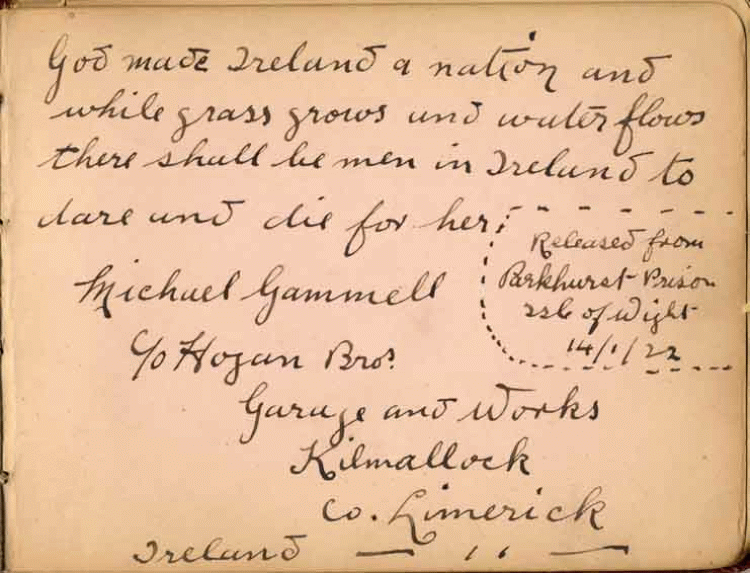 God made Ireland a nation and
while grass grows and water flows
there shall be men in Ireland to
dare and die for her.
Released from
Parkhurst Prison
Isle of Wight
14/1/22
Michael Gammell
c/o Hogan Bros.
Garage and Works
Kilmallock
Co. Limerick
Ireland — ,, —